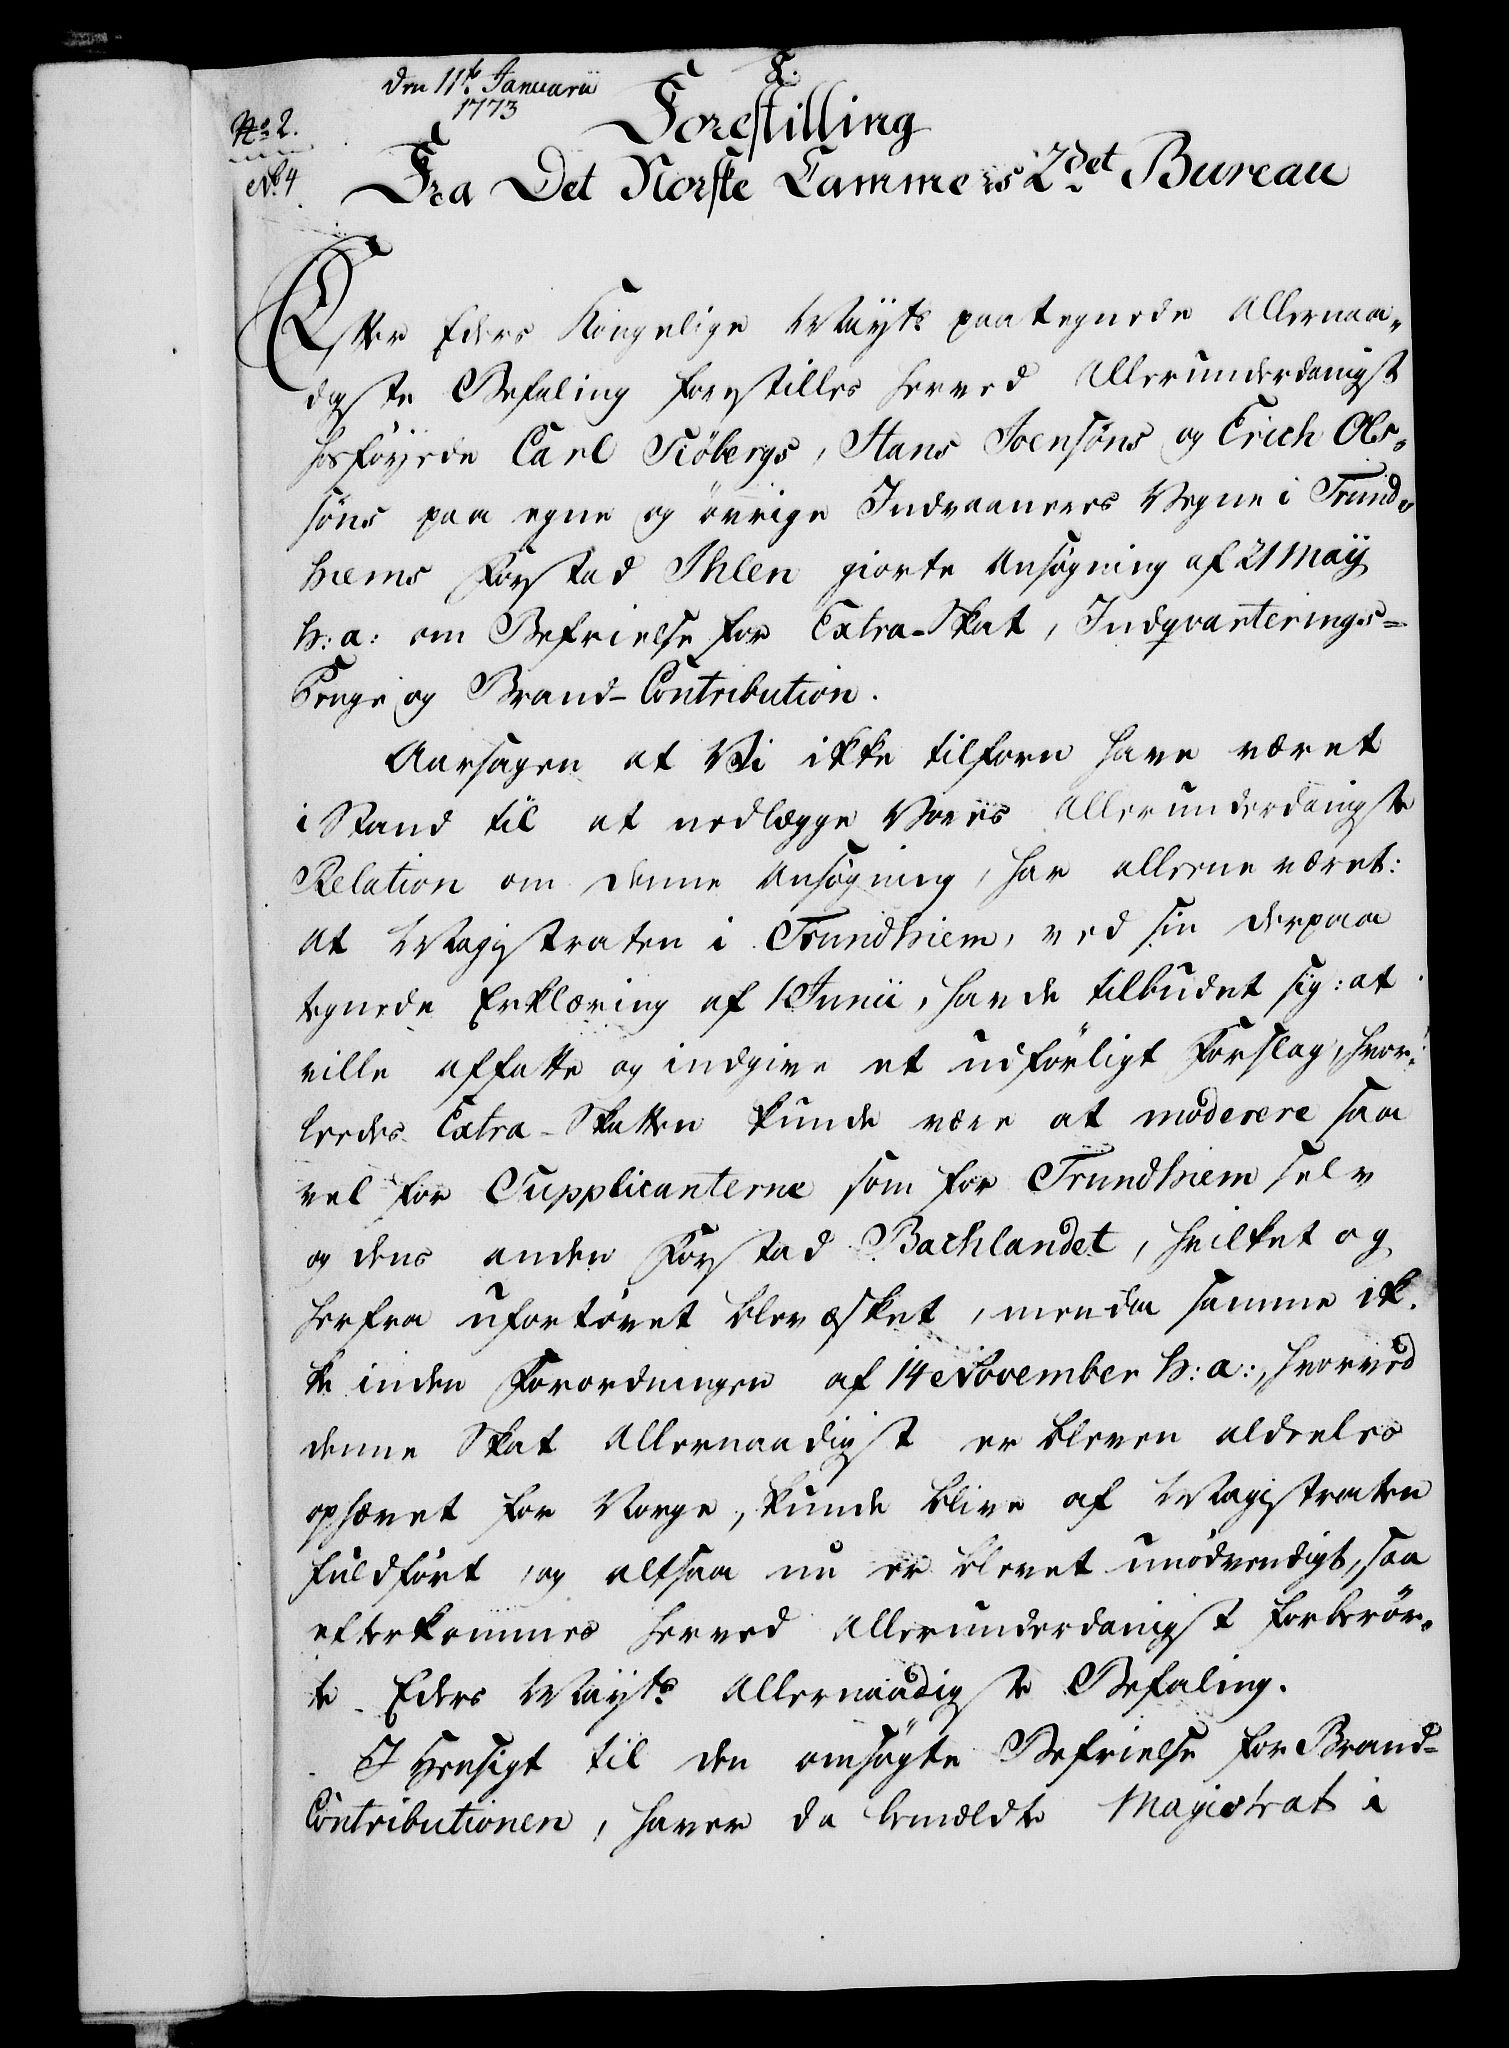 den 11te Januarii
1773
No 2.
No 4.
F.
Forestilling
Fra Det Norske Cammers 2det Bureau
Efter Eders Kongelige Mayts paategnede Allernaa-
digste Befaling forestilles herved Allerunderdanigst
hosføyede Carl Siöbergs, Hans Joensöns og Erich Ols-
söns paa egne og övrige Indvaaneres Vegne i Trund-
hiems Forstad Ihlen giorte Ansøgning af 21 Maÿ
h: a: om Befrielse for Extra-Skat, Indqvarterings-
Penge og Brand-Contribution.
Aarsagen at Vi ikke tilforn have været
i Stand til at nedlægge Voriis Allerunderdanigste
Relation om denne Ansøgning, har allene været:
at Magistraten i Trundhiem, ved sin derpaa
tegnede Erklæring af 1 Junii, havde tilbudet sig: at
ville affatte og indgive et udförligt Forslag, hvor-
ledes Extra-Skatten kunde være at moderere saa
vel for Supplicanterne som for Trundhiem selv
og dens anden Forstad Bachlandet, hvilket og
herfra ufortövet blev æsket, men da samme ik-
ke inden Forordningen af 14 November h: a:, hvorved
denne Skat Allernaadigst er bleven aldeeles
ophævet for Norge, kunde blive af Magistraten
fuldfört, og altsaa nu er blevet unödvendigt, saa
efterkommes herved Allerunderdanigst forberör-
te Eders Mayts Allernaadigste Befaling.
I Hensigt til den ansøgte Befrielse for Brand-
Contributionen, haver da bemeldte Magistrat i